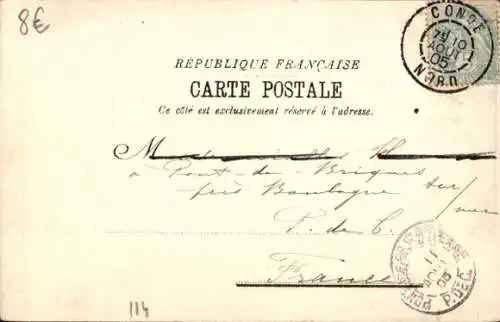 8€
CONDÉ
7E 10
AOUT
05
NORD
RÉPUBLIQUE FRANÇAISE
CARTE POSTALE
Ce côté est exclusivement réservé à l'adresse.
à Pont-de-Briques
près Boulogne sur/mer
P. de C.
France
11
05
P. DE C.
114